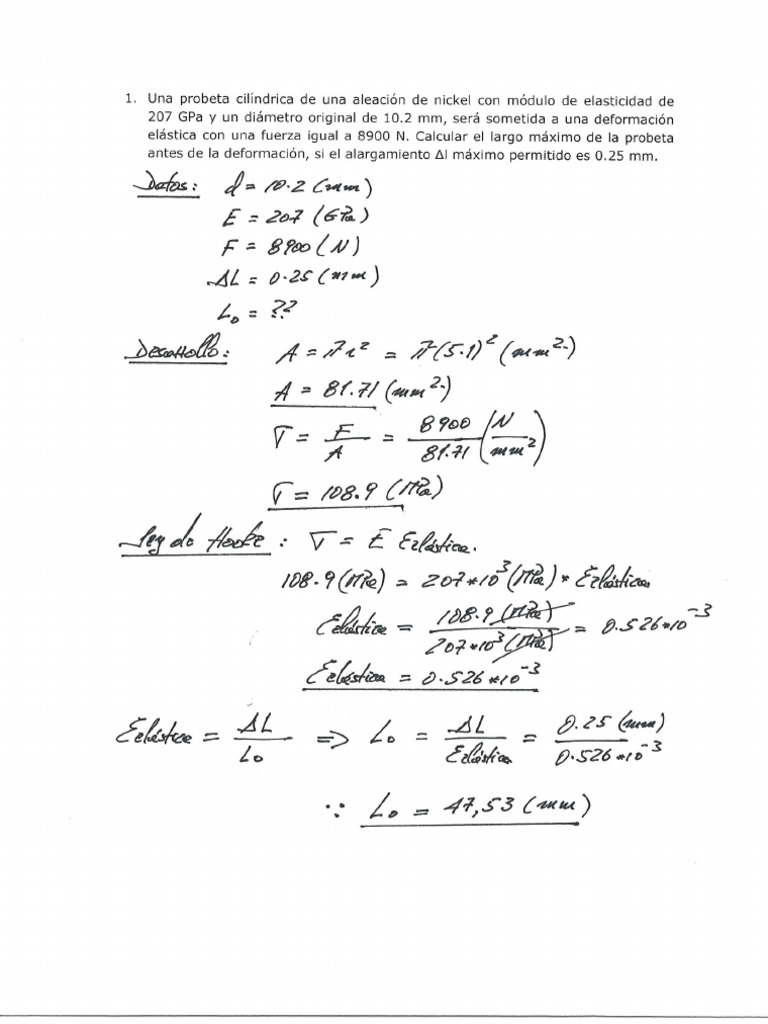 1. Una probeta cilíndrica de una aleación de nickel con módulo de elasticidad de
207 GPa y un diámetro original de 10.2 mm, será sometida a una deformación
elástica con una fuerza igual a 8900 N. Calcular el largo máximo de la probeta
antes de la deformación, si el alargamiento Δl máximo permitido es 0.25 mm.
Datos: d = 10.2 (mm)
E = 207 (GPa)
F = 8900 (N)
ΔL = 0.25 (mm)
L₀ = ??
Desarrollo: A = πr² = π(5.1)² (mm²)
A = 81.71 (mm²)
σ = F/A = 8900/81.71 (N/mm²)
σ = 108.9 (MPa)
Ley de Hooke: σ = E εelástica.
108.9 (MPa) = 207*10³ (MPa) * εelástica
εelástica = 108.9 (MPa)/207*10³ (MPa) = 0.526*10⁻³
εelástica = 0.526*10⁻³
εelástica = ΔL/L₀ ⇒ L₀ = ΔL/εelástica = 0.25 (mm)/0.526*10⁻³
∵ L₀ = 47,53 (mm)